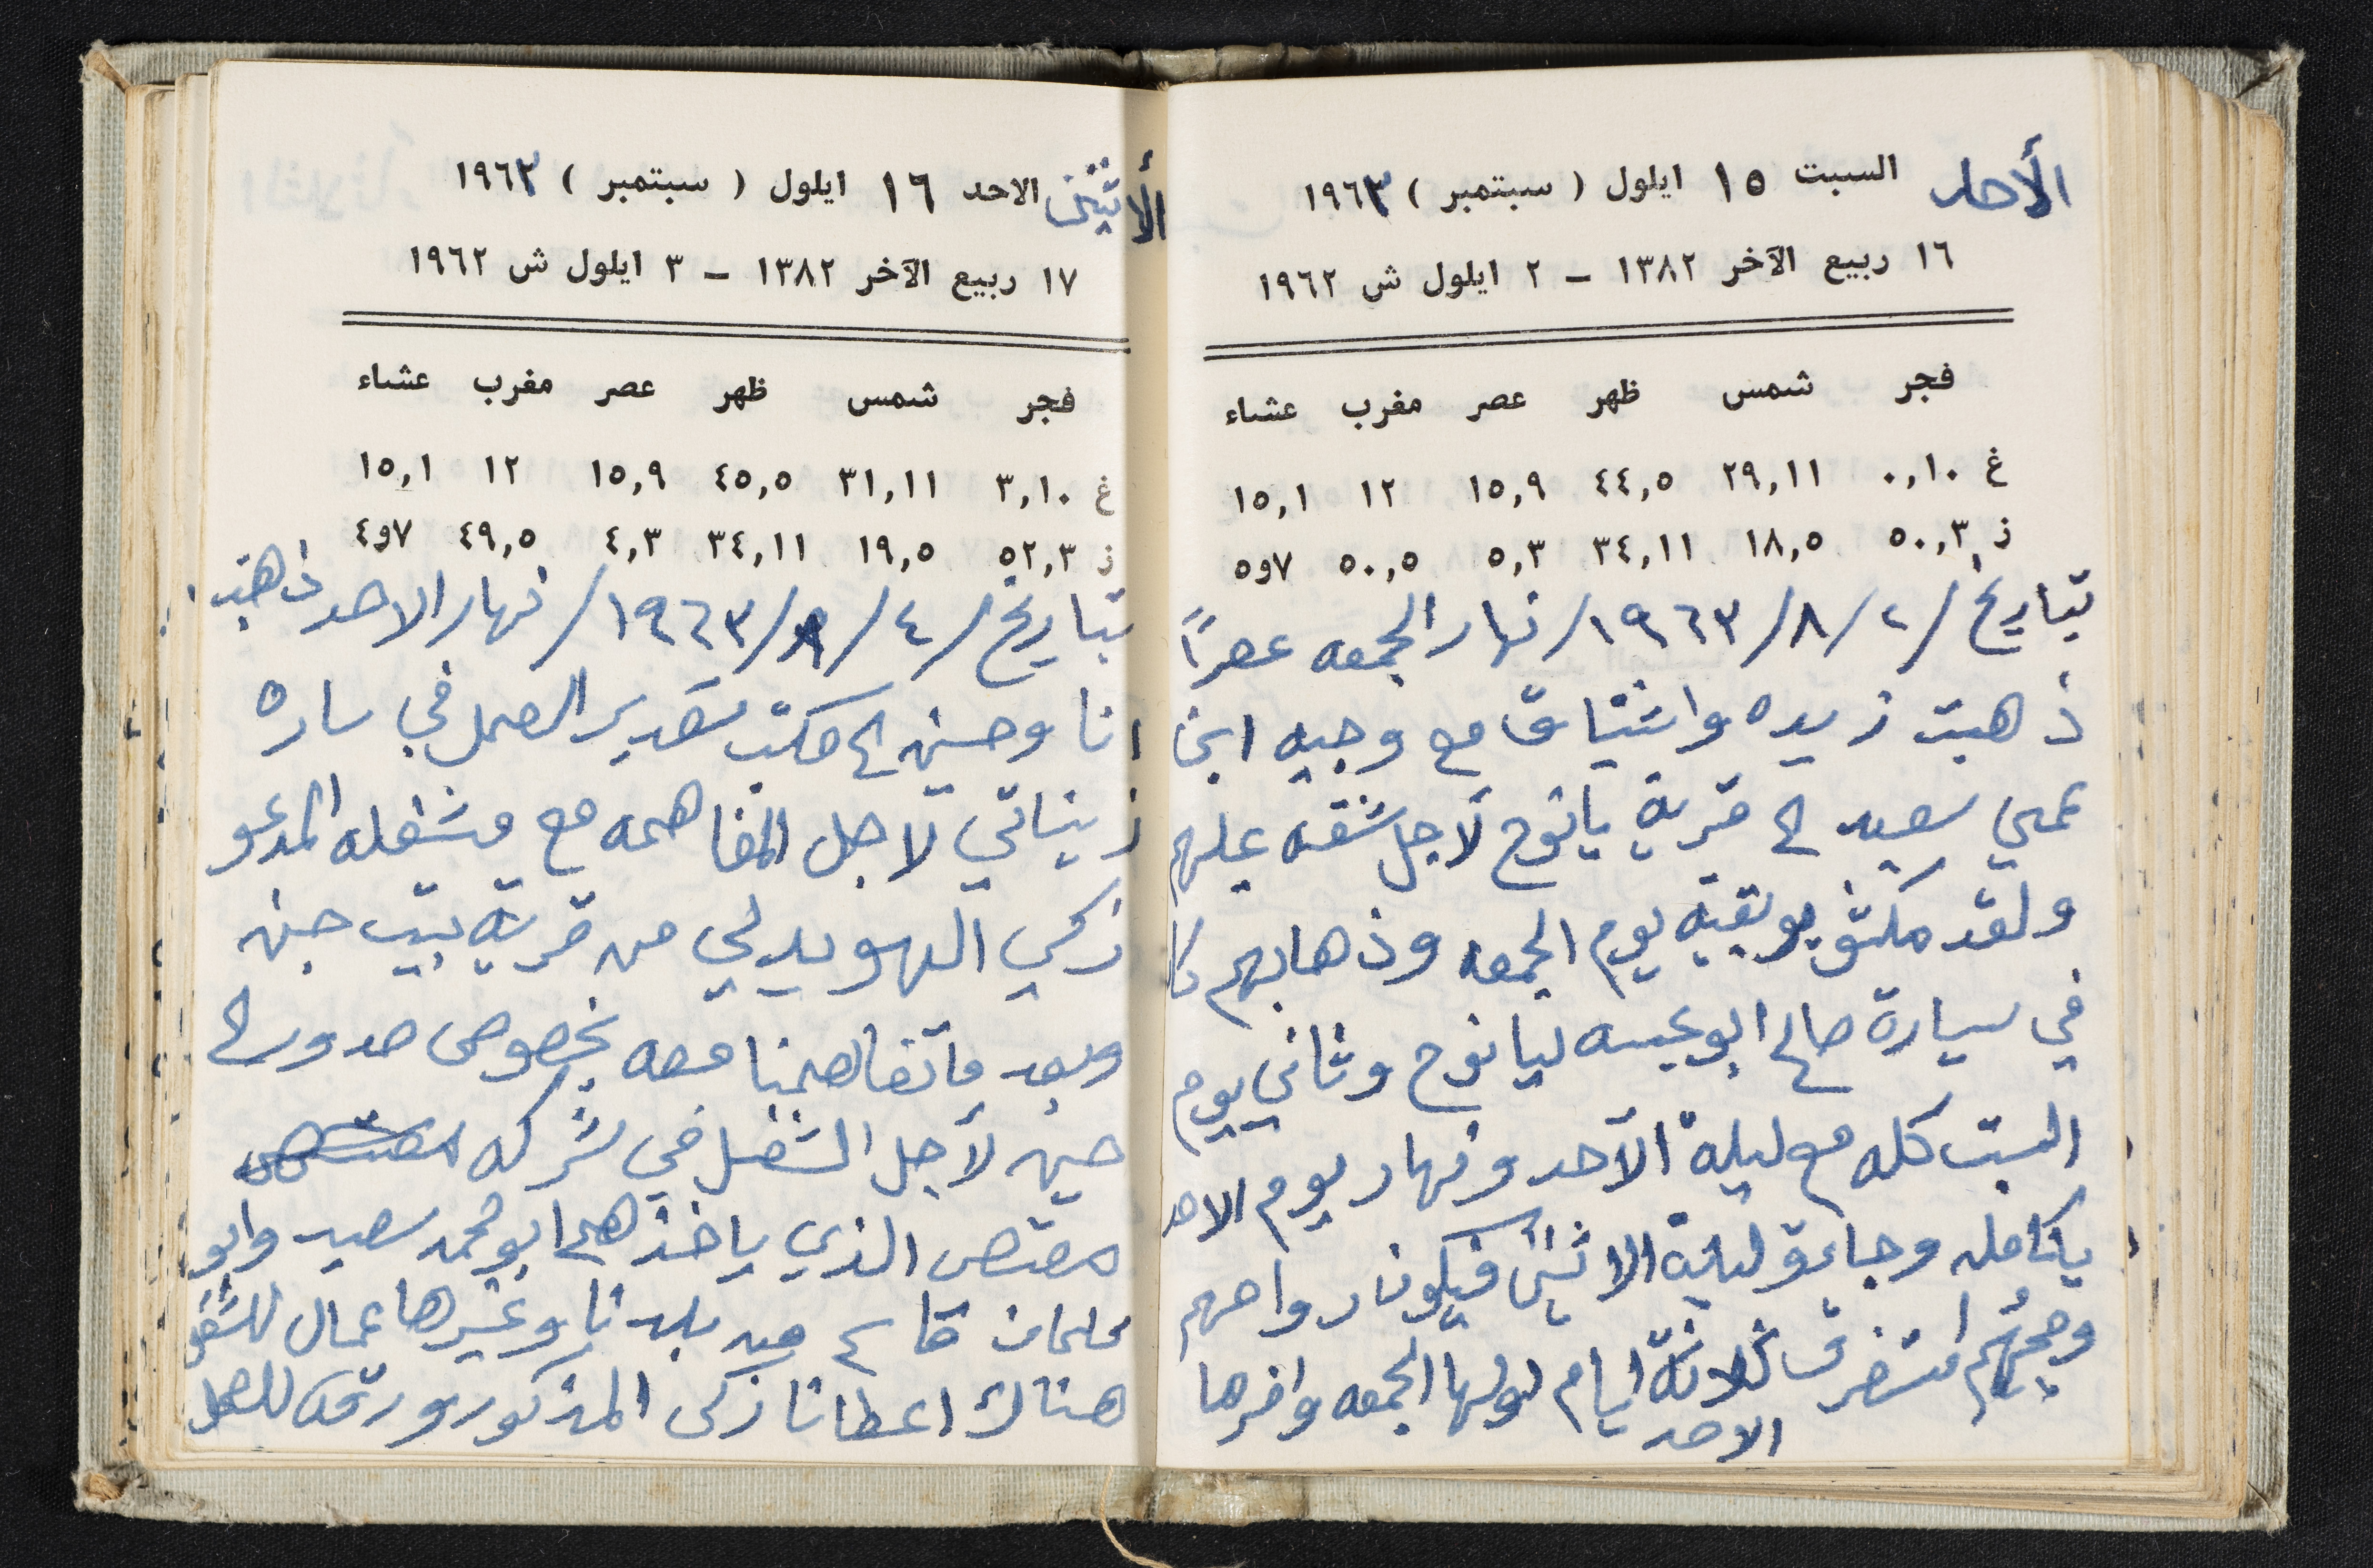 الأحد السبت ١٥ ايلول ( سبتمبر ) ١٩٦٣
١٦ ربيع الآخر ١٣٨٢ – ٢ ايلول ش ١٩٦٢
فجر شمس ظهر عصر مغرب عشاء
غ ٠,١٠ ٢٩,١١ ٤٤,٥ ١٥,٩ ١٢ ١٥,١
ز ٥٠,٣ ١٨,٥ ٣٤,١١ ٥,٣ ٥٠,٥ ٧و٥
بتاريخ /٢/٨/١٩٦٣/ نهار الجمعه عصراً
ذهبت زيده واشتياق مع وجيه ابن
عمي سعيد الى قرية يانوح لاجل شقه عليهم
ولقد مكثو بوبقية يوم الجمعه وذهابهم كا
في سيارة صالح ابو عيسه ليانوح وثاني يوم
السبت كله مع ليلة الأحد ونهار يوم الاحد
بكامله وجاءو ليلة الاثنين فيكون رواحهم
وجيتهم استغرق ثلاثة ايام اولها الجمعه واخرها
الاحد
الأثنين الاحد ١٦ ايلول ( سبتمبر ) ١٩٦٣
١٧ ربيع الآخر ١٣٨٢ – ٣ ايلول ش ١٩٦٢
فجر شمس ظهر عصر مغرب عشاء
غ ٣,١٠ ٣١,١١ ٤٥,٥ ١٥,٩ ١٢ ١٥,١
ز ٥٢,٣ ١٩,٥ ٣٤,١١ ٤,٣ ٤٩,٥ ٧و٤
بتاريخ /٤/٨/١٩٦٣/ نهار الاحد ذهبت
انا وحسين الى مكتب تقدير العمل في ساره
زيناتي لاجل المفاهمه مع مشغله المدعو
زكي الهويدلي من قرية بيت جن
وبعد ما تفاهمنا معه بخصوص
حسين لأجل الشغل في شركه
مقتص الذي ياخذهم ابو محمد سعيد وابو
سلمان قاسم من بلدنا وغيرها عمال للشغل
هناك اعطانا زكي المذكور ورقه للعمل